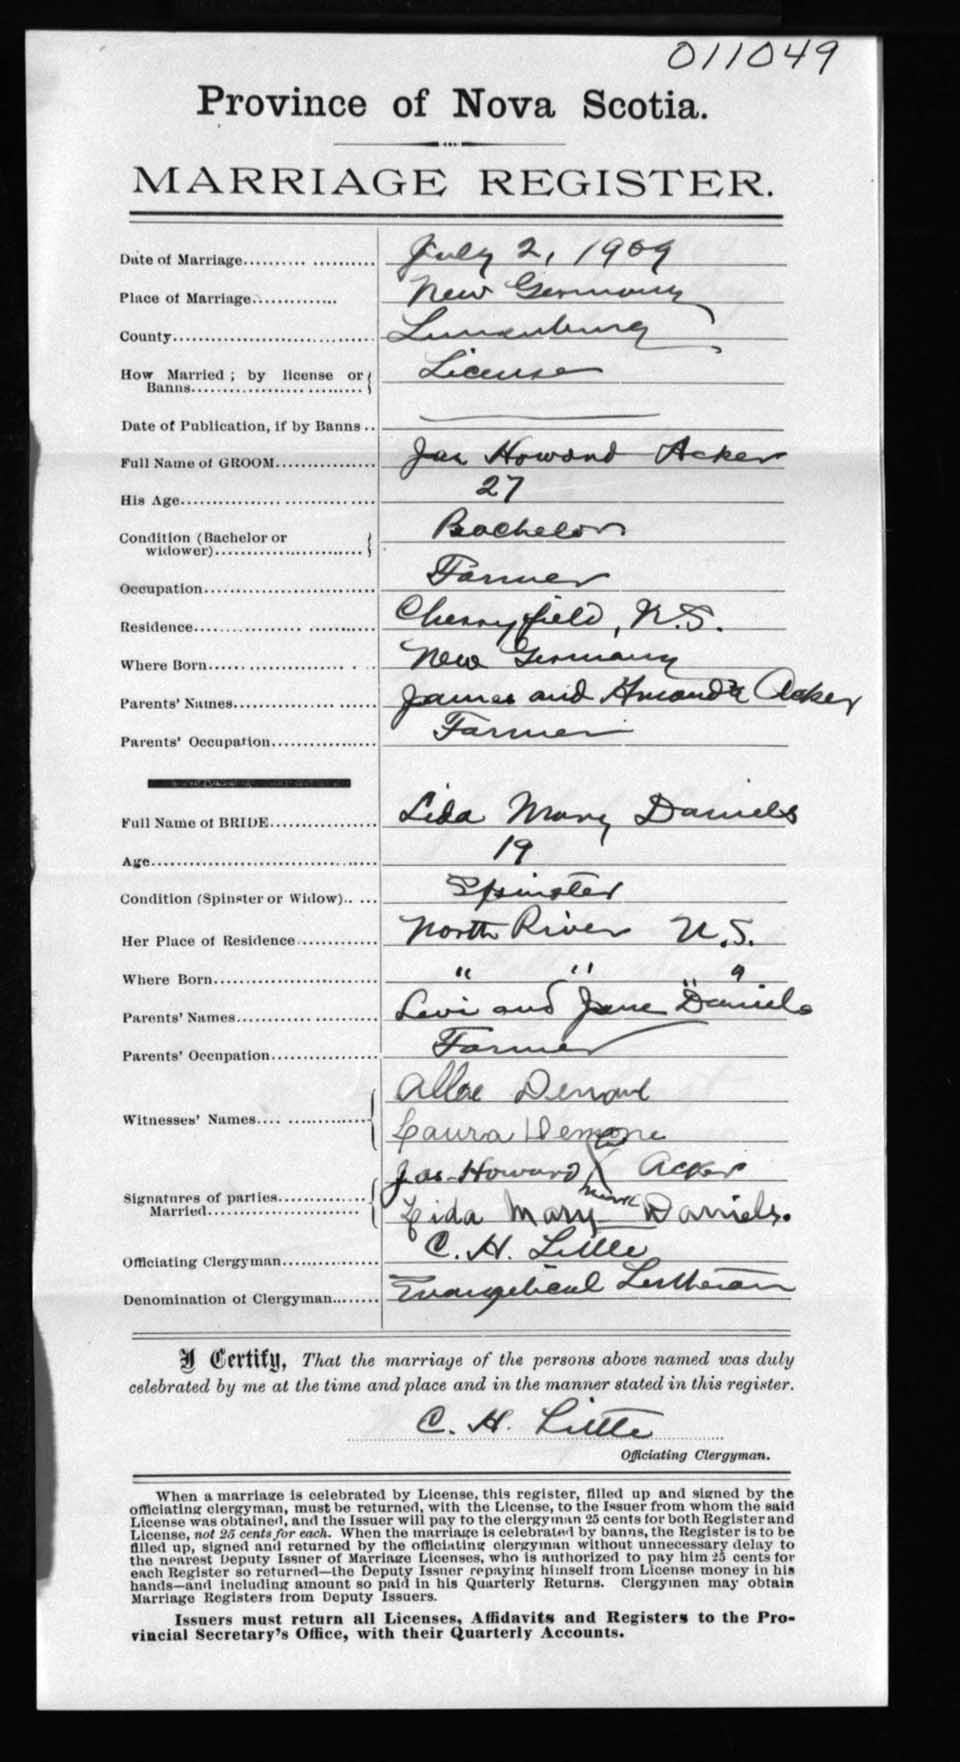 011049
Province of Nova Scotia.
MARRIAGE REGISTER.
Date of Marriage.......... ........... July 2, 1909
Place of Marriage.............. New Germany
County.................................. Lunenburg
How Married ; by license or License
Banns..................................
Date of Publication, if by Banns .. ———
Full Name of GROOM................ Jas Howard Acker
His Age.................................. 27
Condition (Bachelor or Bachelor
widower).............................
Occupation.............................. Farmer
Residence................. ........... Cherryfield, N.S.
Where Born...... ............... . .. New Germany
Parents' Names................. ...... James and Amanda Acker
Parents' Occupation................. Farmer
Full Name of BRIDE................. Lida Mary Daniels
Age...................................... 19
Condition (Spinster or Widow).. ... Spinster
Her Place of Residence............. North River N.S.
Where Born............................ " " " "
Parents' Names............ ........... Levi and Jane Daniels
Parents' Occupation................. Farmer
Witnesses' Names.... ............... Allae
Laura Demone
Signatures of parties............... Jas Howard X Acker
mark
Married............................ Lida Mary Daniels.
Officiating Clergyman............... C. H. Little
Denomination of Clergyman........ Evangelical Lutheran
I Certify, That the marriage of the persons above named was duly
celebrated by me at the time and place and in the manner stated in this register.
C. H. Little
Officiating Clergyman.
When a marriage is celebrated by License, this register, filled up and signed by the
officiating clergyman, must be returned, with the License, to the Issuer from whom the said
License was obtained, and the Issuer will pay to the clergyman 25 cents for both Register and
License, not 25 cents for each. When the marriage is celebrated by banns, the Register is to be
filled up, signed and returned by the officiating clergyman without unnecessary delay to
the nearest Deputy Issuer of Marriage Licenses, who is authorized to pay him 25 cents for
each Register so returned—the Deputy Issuer repaying himself from License money in his
hands—and including amount so paid in his Quarterly Returns. Clergymen may obtain
Marriage Registers from Deputy Issuers.
Issuers must return all Licenses, Affidavits and Registers to the Pro-
vincial Secretary's Office, with their Quarterly Accounts.